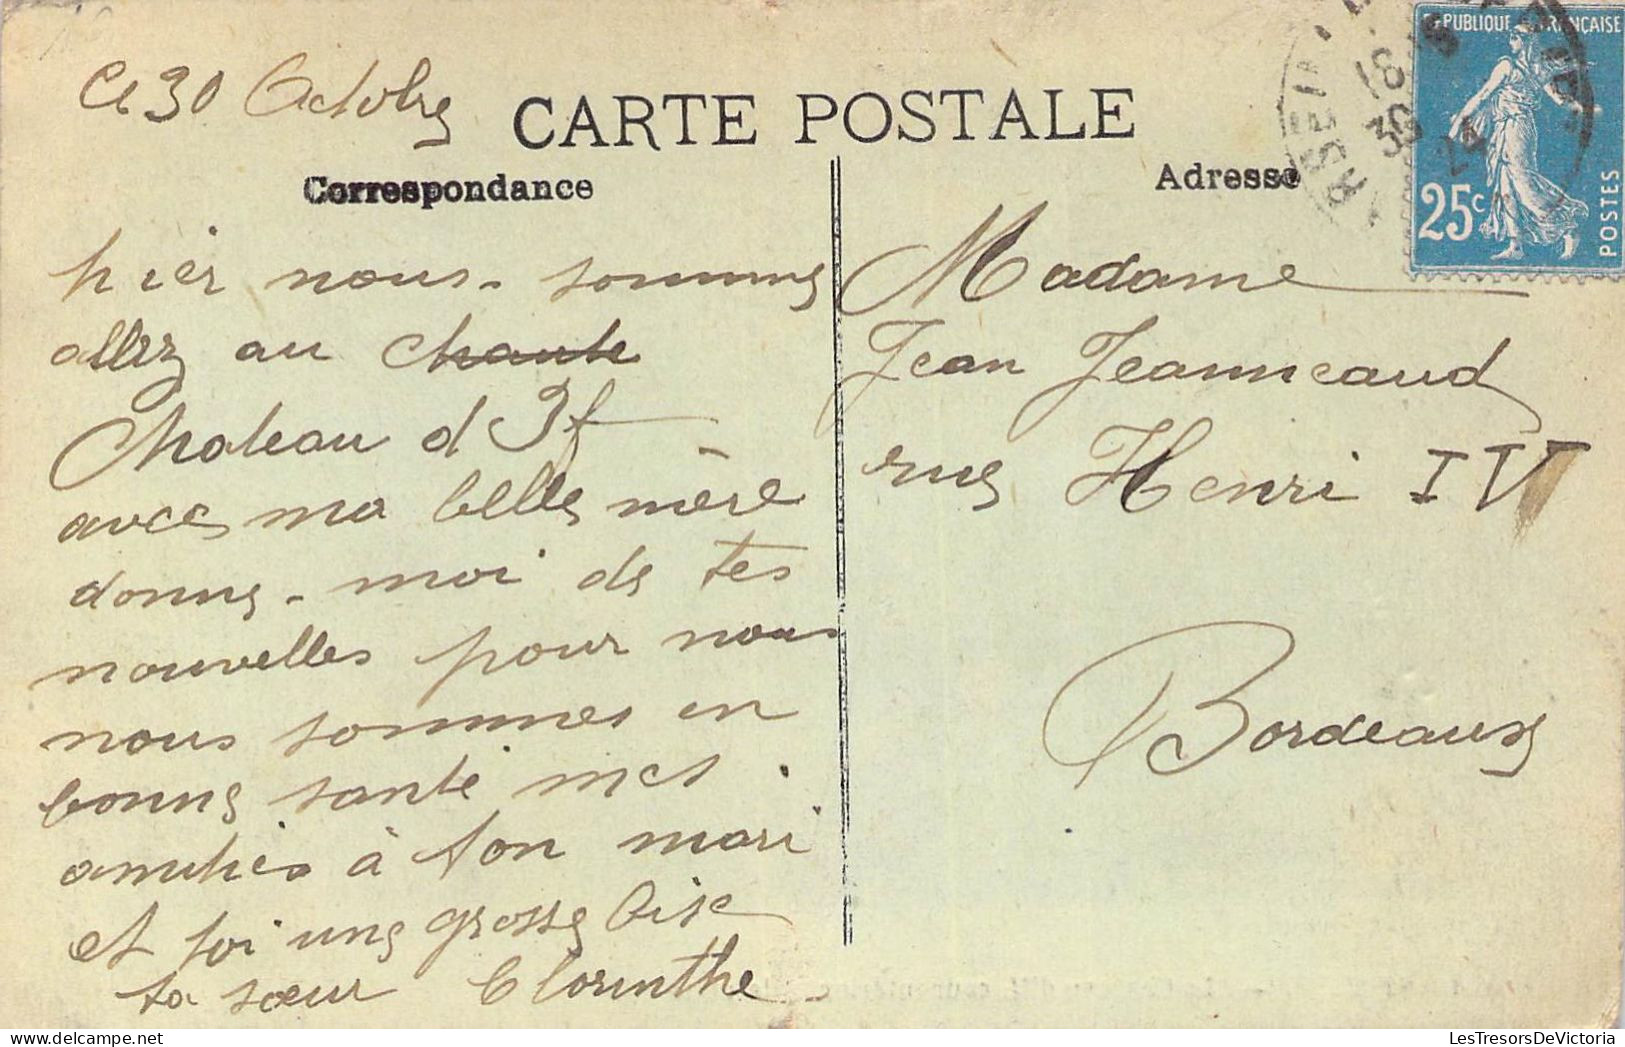 Ce 30 Octobre
CARTE POSTALE
Correspondance
Adresse
RÉPUBLIQUE FRANÇAISE
25c
POSTES
18
30
24
hier nous-sommes
allez au chaute
Chateau d If
avec ma belle mère
donne-moi de tes
nouvelles pour nous
nous sommes en
bonne santé mes
amitiés à ton mari
et toi une grosse bise
ta sœur Clorinthe
Madame
Jean Jeanneaud
rue Henri IV
Bordeaux
LesTresorsDeVictoria